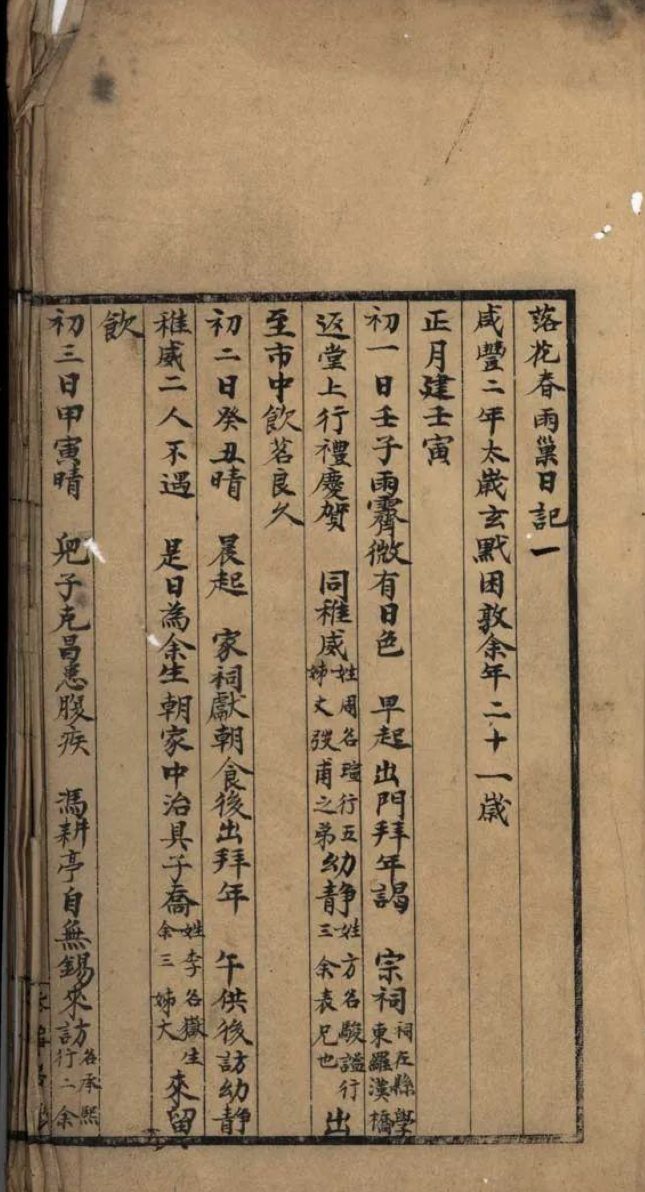 落花春雨巢日記一
咸豐二年太歲玄黓困敦余年二十一歲
正月建壬寅
初一日壬子雨霽微有日色　早起出門拜年謁　宗祠祠在縣學東羅漢橋
返堂上行禮慶賀　同稚威姓周名瑄行五姊丈弢甫之弟幼静姓方名駿謐行三余表兄也出
至市中飲茗良久
初二日癸丑晴　晨起　家祠獻朝食後出拜年　午供後訪幼静
稚威二人不遇　是日為余生朝家中治具子喬姓李名嶽生余三姊丈來留
飲
初三日甲寅晴　兒子克昌患腹疾　馮耕亭自無錫來訪名承熙行二余